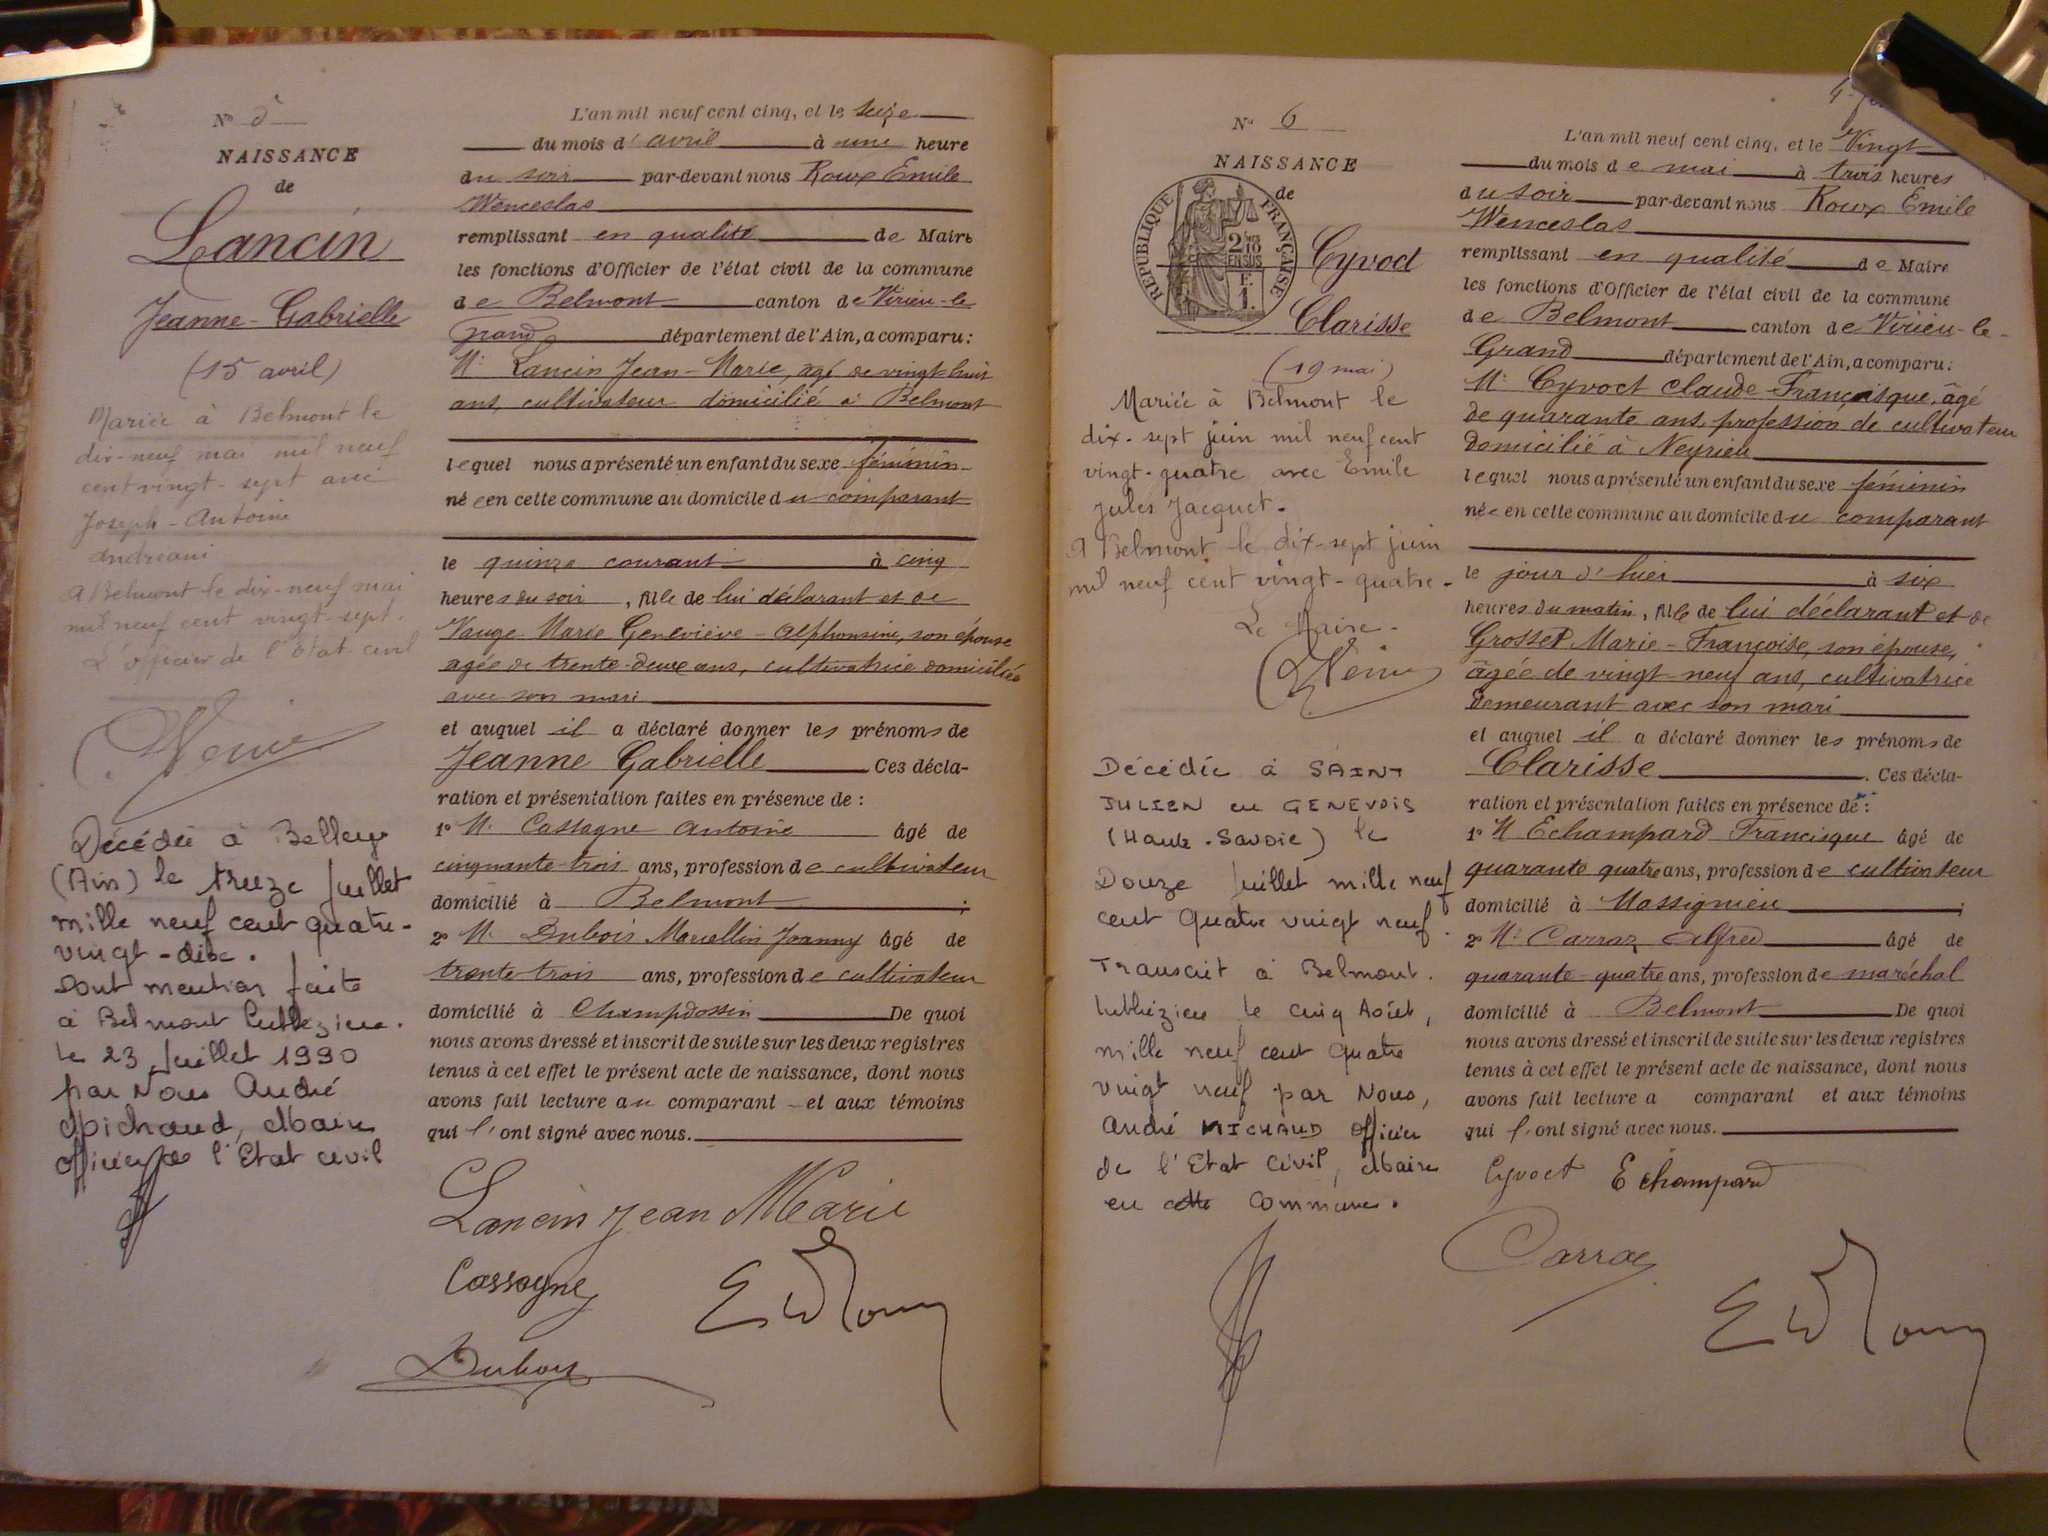 Nº 5
NAISSANCE
de
Lancin
Jeanne-Gabrielle
(15 avril)
Mariée à Belmont le
dix-neuf mai mil neuf
cent vingt-sept avec
Joseph-Antoine
Andréani
A Belmont le dix-neuf mai
mil neuf cent vingt-sept.
L'officier de l'Etat civil
Décédée à Belley
(Ain) le treize Juillet
mille neuf cent quatre-
vingt-dix.
Dont mention faite
à Belmont Luthézieu.
le 23 Juillet 1990
par Nous André
Michaud, Maire
officier de l'Etat civil
L'an mil neuf cent cinq, et le seize
du mois d'avril à une heure
du soir par-devant nous Roux Emile
Wenceslas
remplissant en qualité de Maire
les fonctions d'Officier de l'état civil de la commune
de Belmont canton de Virieu-le
grand département de l'Ain, a comparu:
Mr Lancin Jean-Marie, agé de vingt-huit
ans, cultivateur domicilié à Belmont
lequel nous a présenté un enfant du sexe féminin
née en cette commune au domicile du comparant
le quinze courant à cinq
heures du soir, fille de lui déclarant et de
Vauge Marie Geneviève-Alphonsine, son épouse
agée de trente-deux ans, cultivatrice domiciliée
avec son mari
et auquel il a déclaré donner les prénoms de
Jeanne Gabrielle Ces décla-
ration et présentation faites en présence de :
1º M. Cassagne Antoine âgé de
cinquante-trois ans, profession de cultivateur
domicilié à Belmont ;
2º M. Dubois Marcellin Joanny âgé de
trente-trois ans, profession de cultivateur
domicilié à Champdossin De quoi
nous avons dressé et inscrit de suite sur les deux registres
tenus à cet effet le présent acte de naissance, dont nous
avons fait lecture au comparant et aux témoins
qui l'ont signé avec nous.
Lancin Jean Marie
Cassagne
E W Roux
Dubois
Nº 6
NAISSANCE
de
RÉPUBLIQUE FRANÇAISE
2/10 EN SUS
F. 1.
Cyvoct
Clarisse
(19 mai)
Mariée à Belmont le
dix-sept juin mil neuf cent
vingt-quatre avec Emile
Jules Jacquet.
A Belmont le dix-sept juin
mil neuf cent vingt-quatre.
Le Maire.
Décédée à SAINT
JULIEN en GENEVOIS
(Haute-Savoie) le
Douze Juillet mille neuf
cent Quatre vingt neuf.
Transcrit à Belmont.
Luthézieu le cinq Août,
mille neuf cent Quatre
vingt neuf par Nous,
André MICHAUD officier
de l'Etat Civil, Maire
en cette Commune.
L'an mil neuf cent cinq, et le Vingt
du mois de mai à trois heures
du soir par-devant nous Roux Emile
Wenceslas
remplissant en qualité de Maire
les fonctions d'Officier de l'état civil de la commune
de Belmont canton de Virieu-le-
Grand département de l'Ain, a comparu:
Mr Cyvoct Claude-Françisque, âgé
de quarante ans, profession de cultivateur
domicilié à Neyrieu
lequel nous a présenté un enfant du sexe féminin
née en cette commune au domicile du comparant
le jour d'hier à six
heures du matin, fille de lui déclarant et de
Grosset Marie-Françoise, son épouse,
âgée de vingt-neuf ans, cultivatrice
demeurant avec son mari
et auquel il a déclaré donner les prénoms de
Clarisse. Ces décla-
ration et présentation faites en présence de :
1º M Echampard Francisque âgé de
quarante quatre ans, profession de cultivateur
domicilié à Massignieu ;
2º Mr Carraz Alfred âgé de
quarante-quatre ans, profession de maréchal
domicilié à Belmont De quoi
nous avons dressé et inscrit de suite sur les deux registres
tenus à cet effet le présent acte de naissance, dont nous
avons fait lecture a comparant et aux témoins
qui l'ont signé avec nous.
Cyvoct Echampard
Carraz
E W Roux